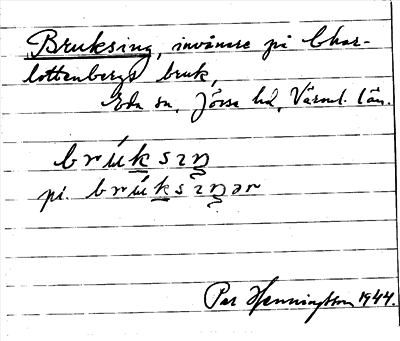 Bruksing, invånare på Char-
lottenbergs bruk,
Eda sn, Jösse hd, Värml. län.
brúksıŋ
pl. brúksıŋər
Per Henningsson 1944.